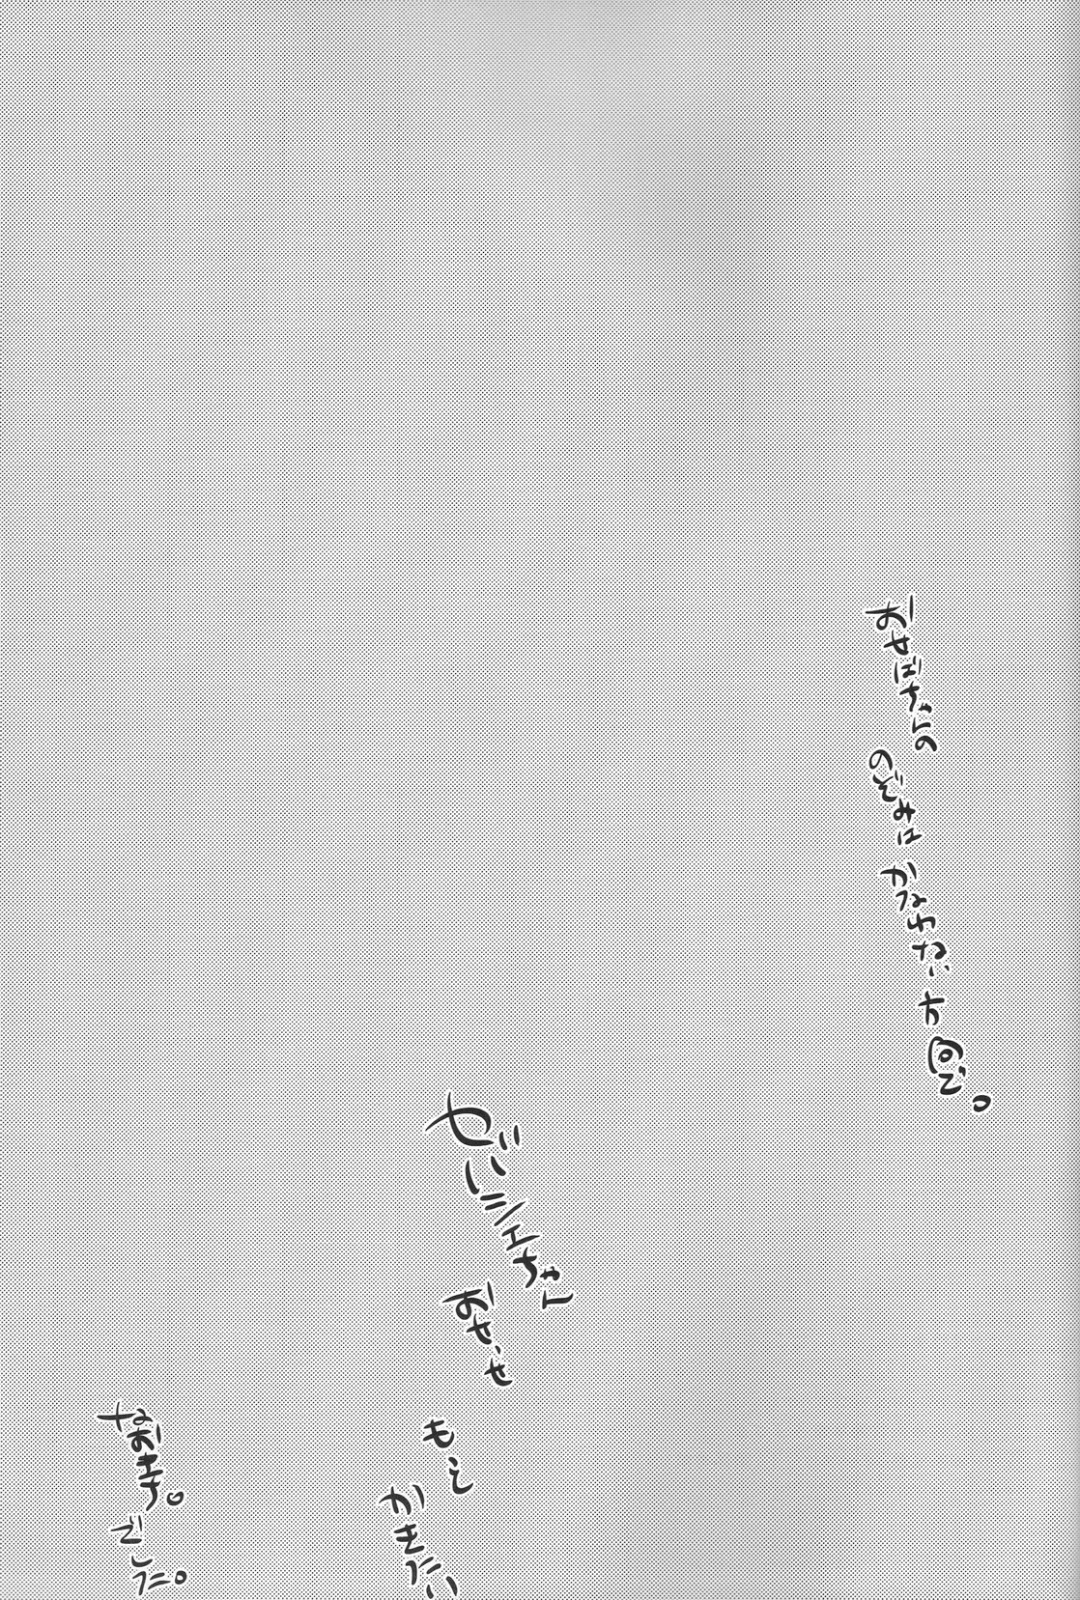 おやばちょの
のぞみは
かなわない
方
向で。
ぜいミエちゃん
おやせ
もっと
かきたい
なおきち。
でした。